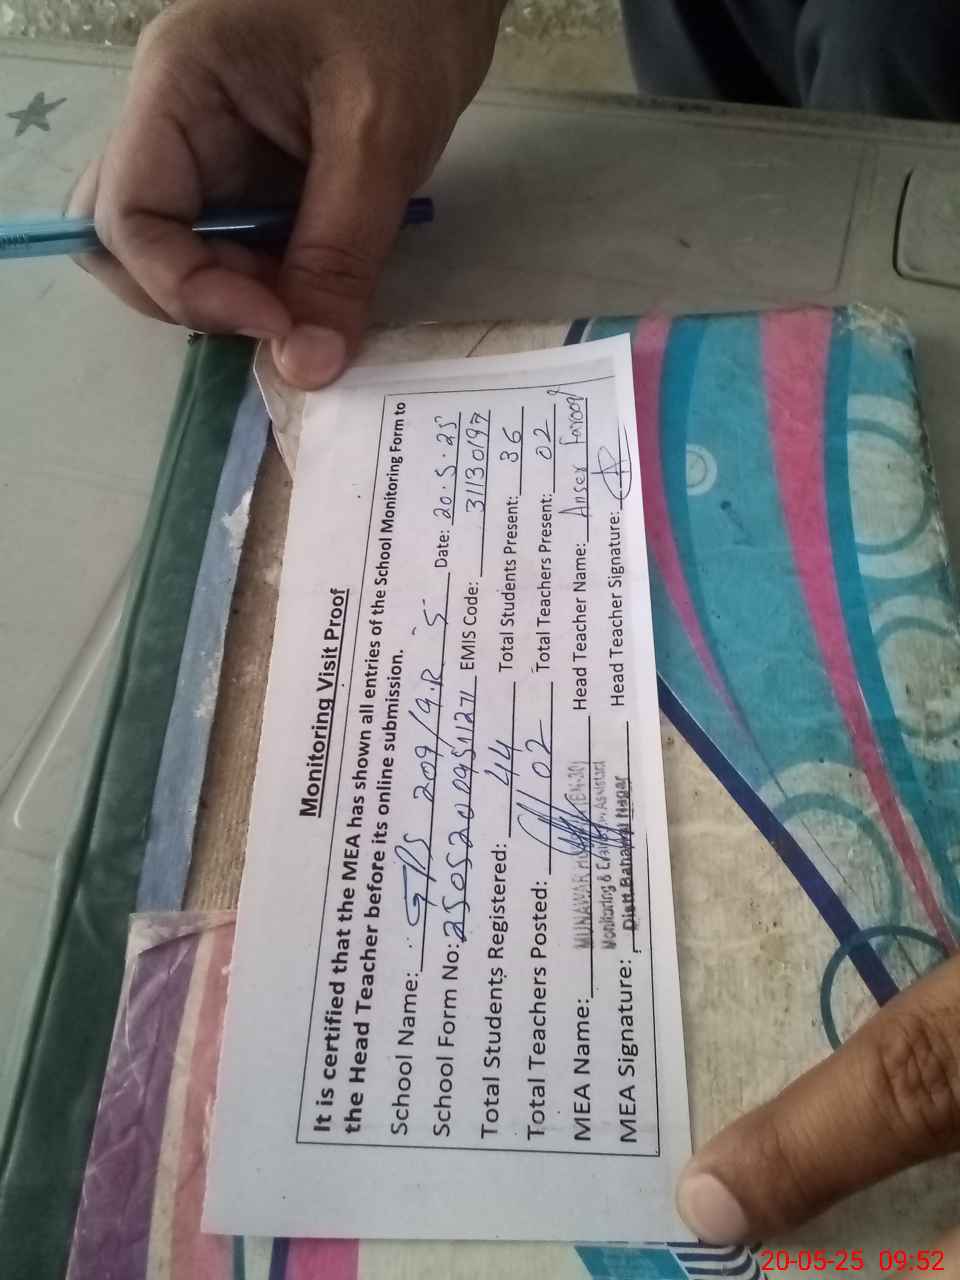 Monitoring Visit Proof
It is certified that the MEA has shown all entries of the School Monitoring Form to
the Head Teacher before its online submission.
School Name: GPS 209/9.R Date: 20.5.25
School Form No: EMIS Code: 31130197
Total Students Registered: 44 Total Students Present: 36
Total Teachers Posted: 02 Total Teachers Present: 02
MEA Name: MUNAWAR Head Teacher Name: Anser Farooq
Monitoring & Evaluation Assistant
MEA Signature: Distt. Bahawal Nagar Head Teacher Signature:
20-05-25 09:52